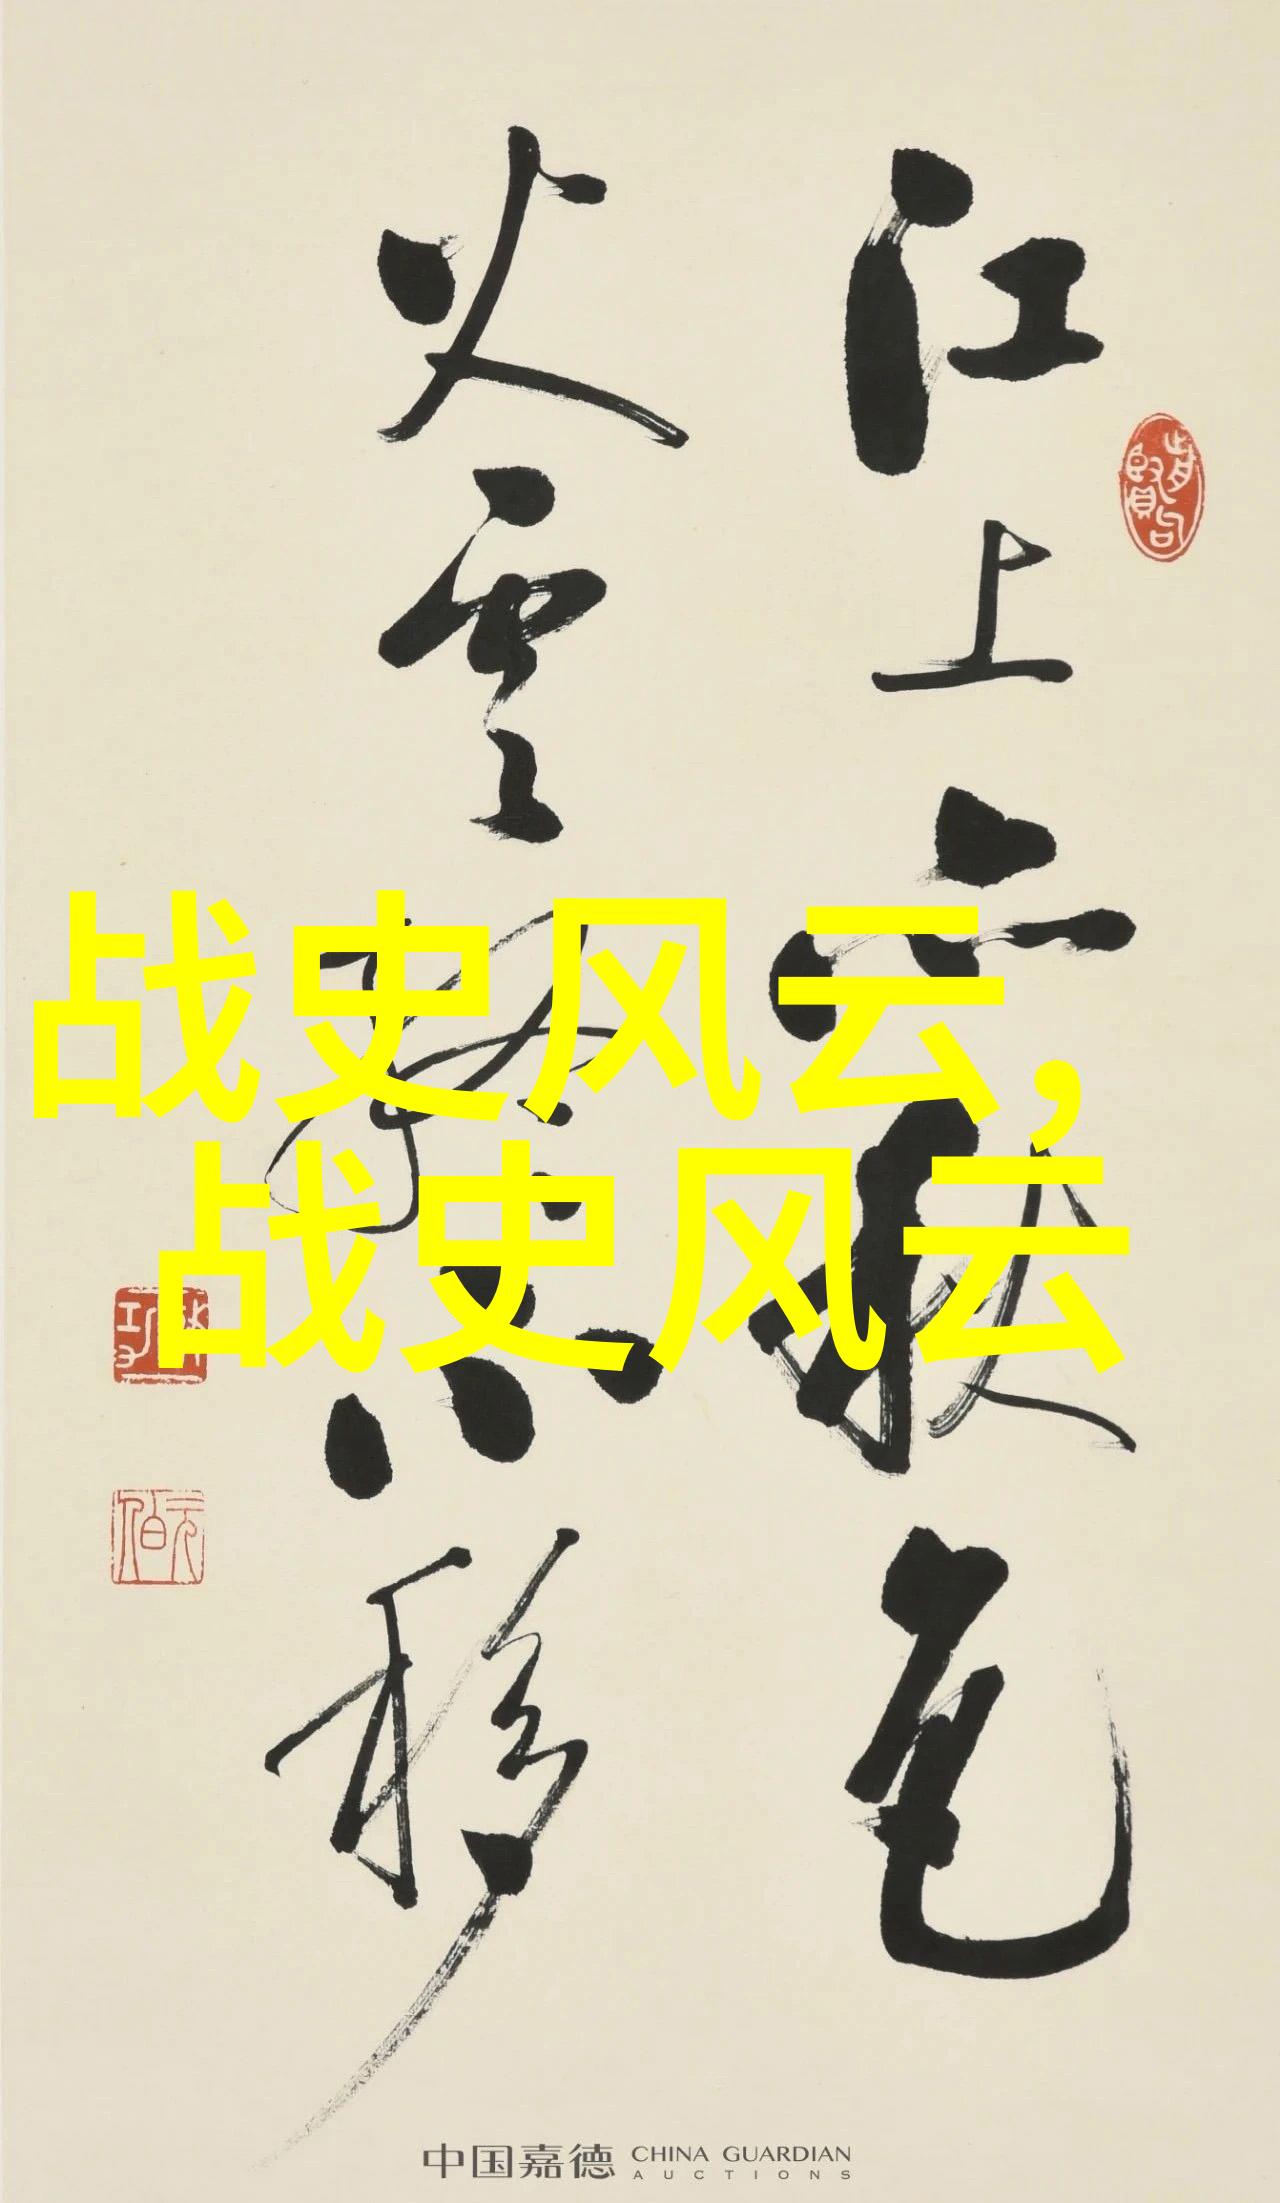 江上亦秋色
火雲終不移
战史风云,
战史风云
中国嘉德 CHINA GUARDIAN
AUCTIONS